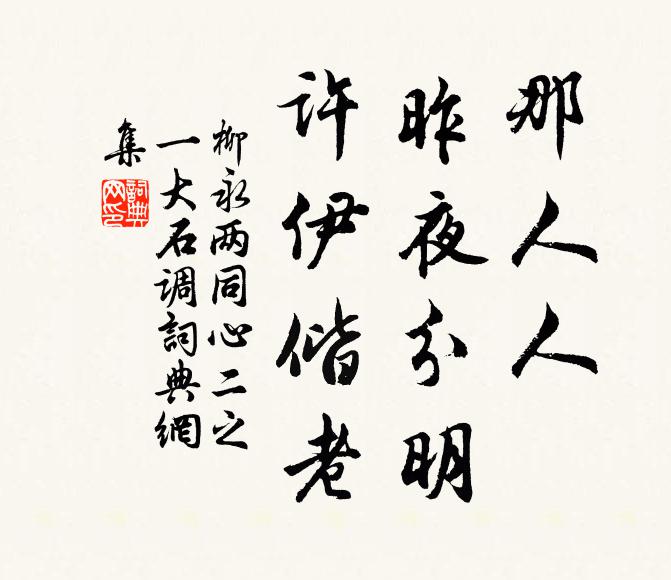 那人人
昨夜分明
许伊偕老
柳永两同心二之
一大石调詞典網
集
詞典网印